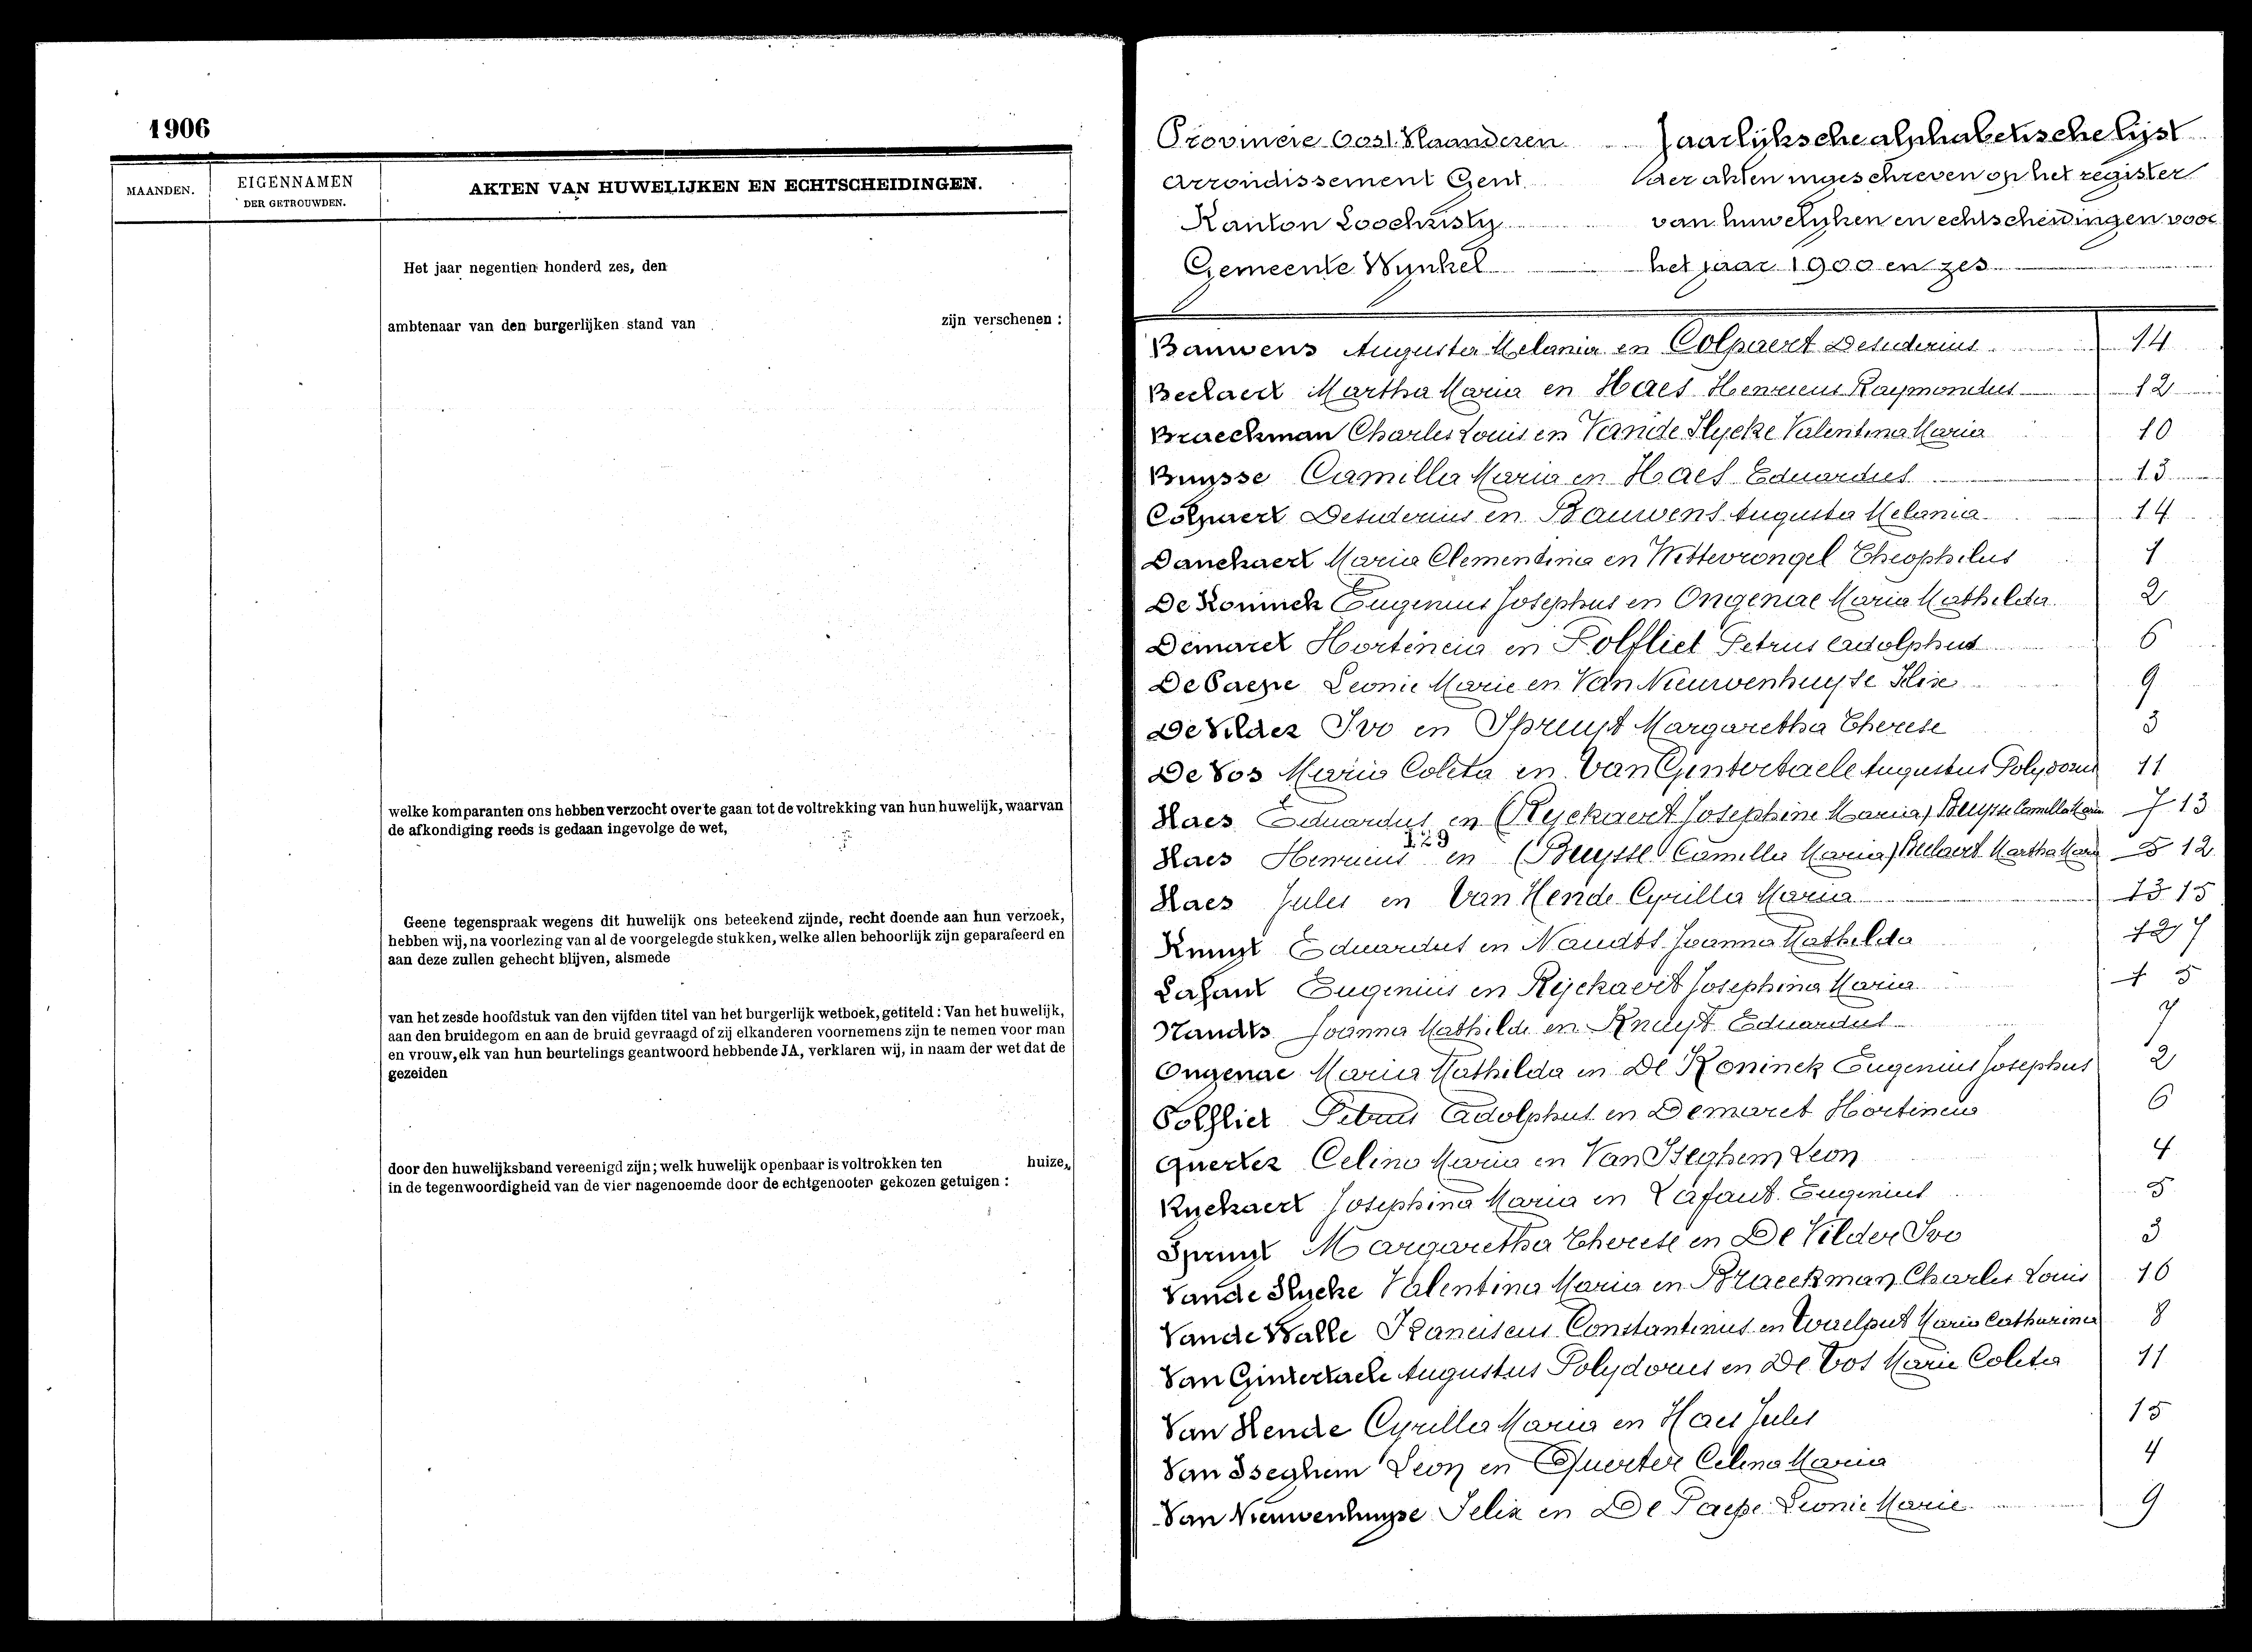 1906
MAANDEN.
EIGENNAMEN
DER GETROUWDEN.
AKTEN VAN HUWELIJKEN EN ECHTSCHEIDINGEN.
Het jaar negentien honderd zes, den
ambtenaar van den burgerlijken stand van zijn verschenen :
welke komparanten ons hebben verzocht over te gaan tot de voltrekking van hun huwelijk, waarvan
de afkondiging reeds is gedaan ingevolge de wet,
Geene tegenspraak wegens dit huwelijk ons beteekend zijnde, recht doende aan hun verzoek,
hebben wij, na voorlezing van al de voorgelegde stukken, welke allen behoorlijk zijn geparafeerd en
aan deze zullen gehecht blijven, alsmede
van het zesde hoofdstuk van den vijfden titel van het burgerlijk wetboek, getiteld : Van het huwelijk,
aan den bruidegom en aan de bruid gevraagd of zij elkanderen voornemens zijn te nemen voor man
en vrouw, elk van hun beurtelings geantwoord hebbende JA, verklaren wij, in naam der wet dat de
gezeiden
door den huwelijksband vereenigd zijn; welk huwelijk openbaar is voltrokken ten huize,
in de tegenwoordigheid van de vier nagenoemde door de echtgenooten gekozen getuigen :
Provincie Oost Vlaanderen Jaarlijksche alphabetische lijst
Arrondissement Gent der akten ingeschreven op het register
Kanton Loochristy van huwelijken en echtscheidingen voor
Gemeente Wynkel het jaar 1900 en zes
Bauwens Augusta Melania en Colpaert Desiderius 14
Beelaert Martha Maria en Haes Henricus Raymondus 12
Braeckman Charles Louis en Vande Slycke Valentina Maria 10
Buysse Camilla Maria en Haes Eduardus 13
Colpaert Desiderius en Bauwens Augusta Melania 14
Danckaert Maria Clementina en Wittevrongel Theophilus 1
De Koninck Eugenius Josephus en Ongenae Maria Mathilda 2
Demaret Hortencia en Polfliet Petrus Adolphus 6
De Paepe Leonie Marie en Van Nieuwenhuyse Felix 9
De Vilder Ivo en Spruyt Margaretha Therese 3
De Vos Maria Coleta en Van Ginterbaele Augustus Polydorus 11
Haes Eduardus en (Ryckaert Josephine Maria) Buysse Camilla Maria 7 13
Haes Henricus en (Buysse Camilla Maria) Beelaert Martha Maria 5 12
Haes Jules en Van Hende Cyrilla Maria 13 15
Knuyt Eduardus en Naudts Joanna Mathilda 12 7
Lafaut Eugenius en Ryckaert Josephina Maria 1 5
Naudts Joanna Mathilda en Knuyt Eduardus 7
Ongenae Maria Mathilda en De Koninck Eugenius Josephus 2
Polfliet Petrus Adolphus en Demaret Hortencia 6
Querter Celina Maria en Van Iseghem Leon 4
Ryckaert Josephina Maria en Lafaut Eugenius 5
Spruyt Margaretha Therese en De Vilder Ivo 3
Vande Slycke Valentina Maria en Braeckman Charles Louis 10
Vande Walle Franciscus Constantinus en Maria Catharina 8
Van Ginterbaele Augustus Polydorus en De Vos Marie Coleta 11
Van Hende Cyrilla Maria en Haes Jules 15
Van Iseghem Leon en Querter Celina Maria 4
Van Nieuwenhuyse Felix en De Paepe Leonie Marie 9